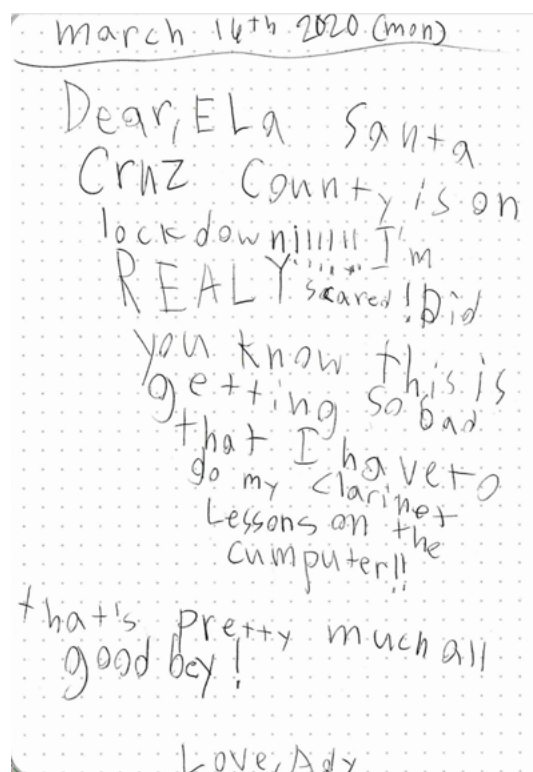 march 16th 2020 (mon)
Dear, ELa Santa
Cruz County is on
lockdown!!!!!! I'm
REALY scared! Did
you know this is
getting so bad
that I have to
do my clarinet
Lessons on the
cumputer!!
that's pretty much all
good bey!
Love, Ady